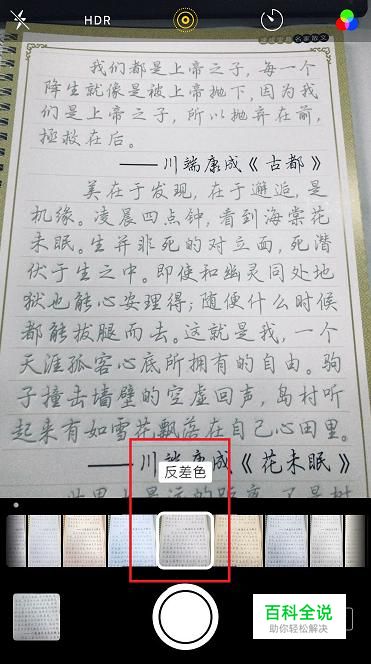 HDR
名家散文
我们都是上帝之子，每一个
降生就像是被上帝抛下，因为我
们是上帝之子，所以抛弃在前，
拯救在后。
——川端康成《古都》
美在于发现，在于邂逅，是
机缘。凌晨四点钟，看到海棠花
未眠。生并非死的对立面，死潜
伏于生之中。即使和幽灵同处地
狱也能心安理得；随便什么时候
都能拔腿而去。这就是我，一个
天涯孤客心底所拥有的自由。驹
子撞击墙壁的空虚回声，岛村听
起来有如雪花飘落在自己心田里。
——川端康成《花未眠》
反差色
百科全说
助你轻松解决